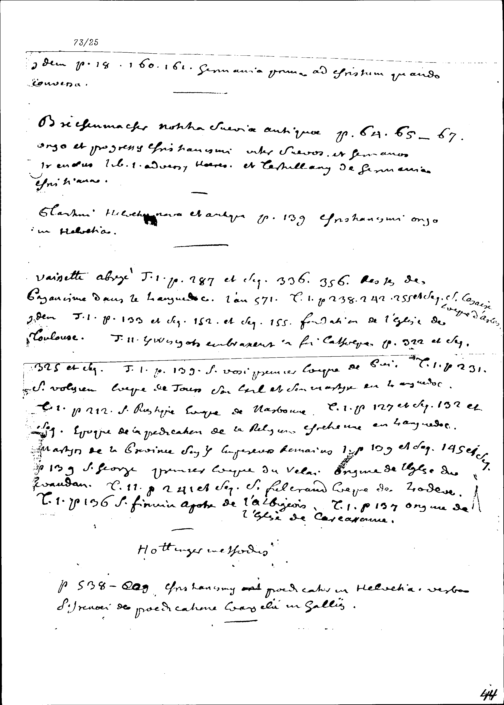 73/25
Idem p. 18. 160. 161. Germania prima ad christum quando
conversa.
Breichenmacher notitia Sueviae antiquae p. 64. 65 — 67.
origo et progressus christianismi inter Suevos et Germanos
Irenaeus lib. 1. advers. Haeres. et Tertullianus de Germanis
christianis.
Glareani Helvetia nova et antiqua p. 139 christianismi origo
in Helvetia.
Vaissette abregé T. 1. p. 287 et seq. 336. 356. Restes des
Paganisme dans le Languedoc. l'an 571. T. 1. p 238. 242. 255 et seq. S. Cesaire
Evêque d'Arles
Idem T. 1. p. 133 et seq. 152. et seq. 155. fondation de l'église de
Toulouse. T. II. Wisigots embrassent la foi Catholique p. 322 et seq.
325 et seq. T. 1. p. 139. S. premier Evêque de T. 1. p 231.
S. Volusien Evêque de Tours son Exil et son martyre en Languedoc.
T. 1. p 212. S. Rustique Evêque de Narbonne. T. 1. p 127 et seq. 132 et
seq. Epoque de la predication de la Religion chretienne en Languedoc.
Martyrs de la Province sous les Empereurs Romains 1. p 139 et seq. 145 et seq.
p 139 S. George premier Evêque du Velai. Origine de l'Eglise du
Gevaudan. T. 11. p 241 et seq. S. fulcrand Evêque de Lodeve.
T. 1. p 136 S. firmin apotre de l'albigeois. T. 1. p 137 origine de
l'Eglise de Carcassonne.
Hottinger methodus
p 538 – christianismus praedicatus in Helvetia. verba
S. Irenaei de praedicatione Evangelii in Galliis.
44